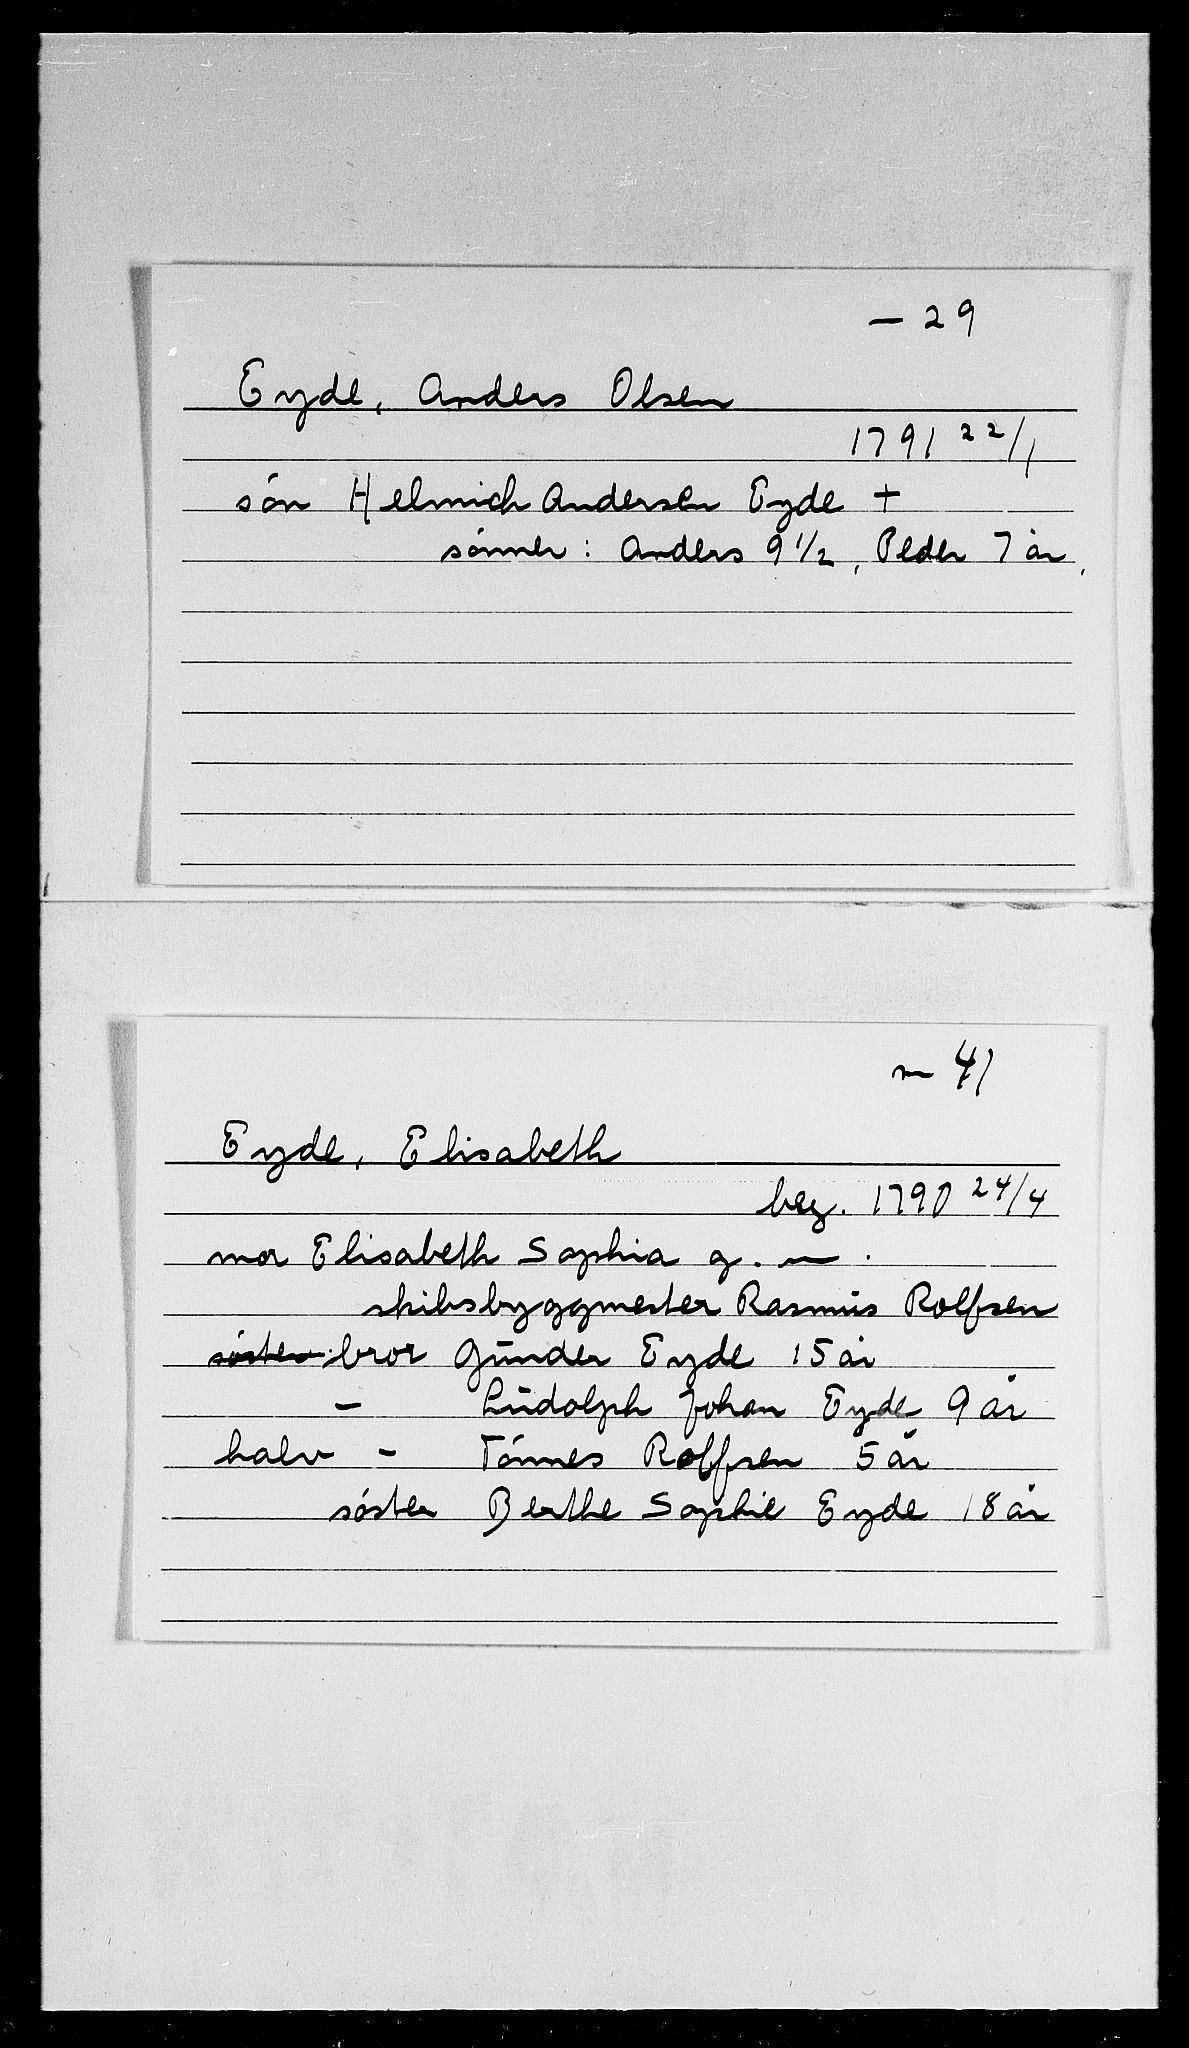 — 29
Eyde, Anders Olsen
1791 22/1
sön Helmich Andersen Eyde +
sönner: Anders 9 1/2, Peder 7 år,
~ 41
Eyde, Elisabeth
beg. 1790 24/4
mor Elisabeth Sophia g. — .
skibsbyggmester Rasmus Rolfsen
söster bror Gunder Eyde 15 år
- Ludolph Johan Eyde 9 år
halv - Tönnes Rolfsen 5 år
söster Berthe Sophie Eyde 18 år